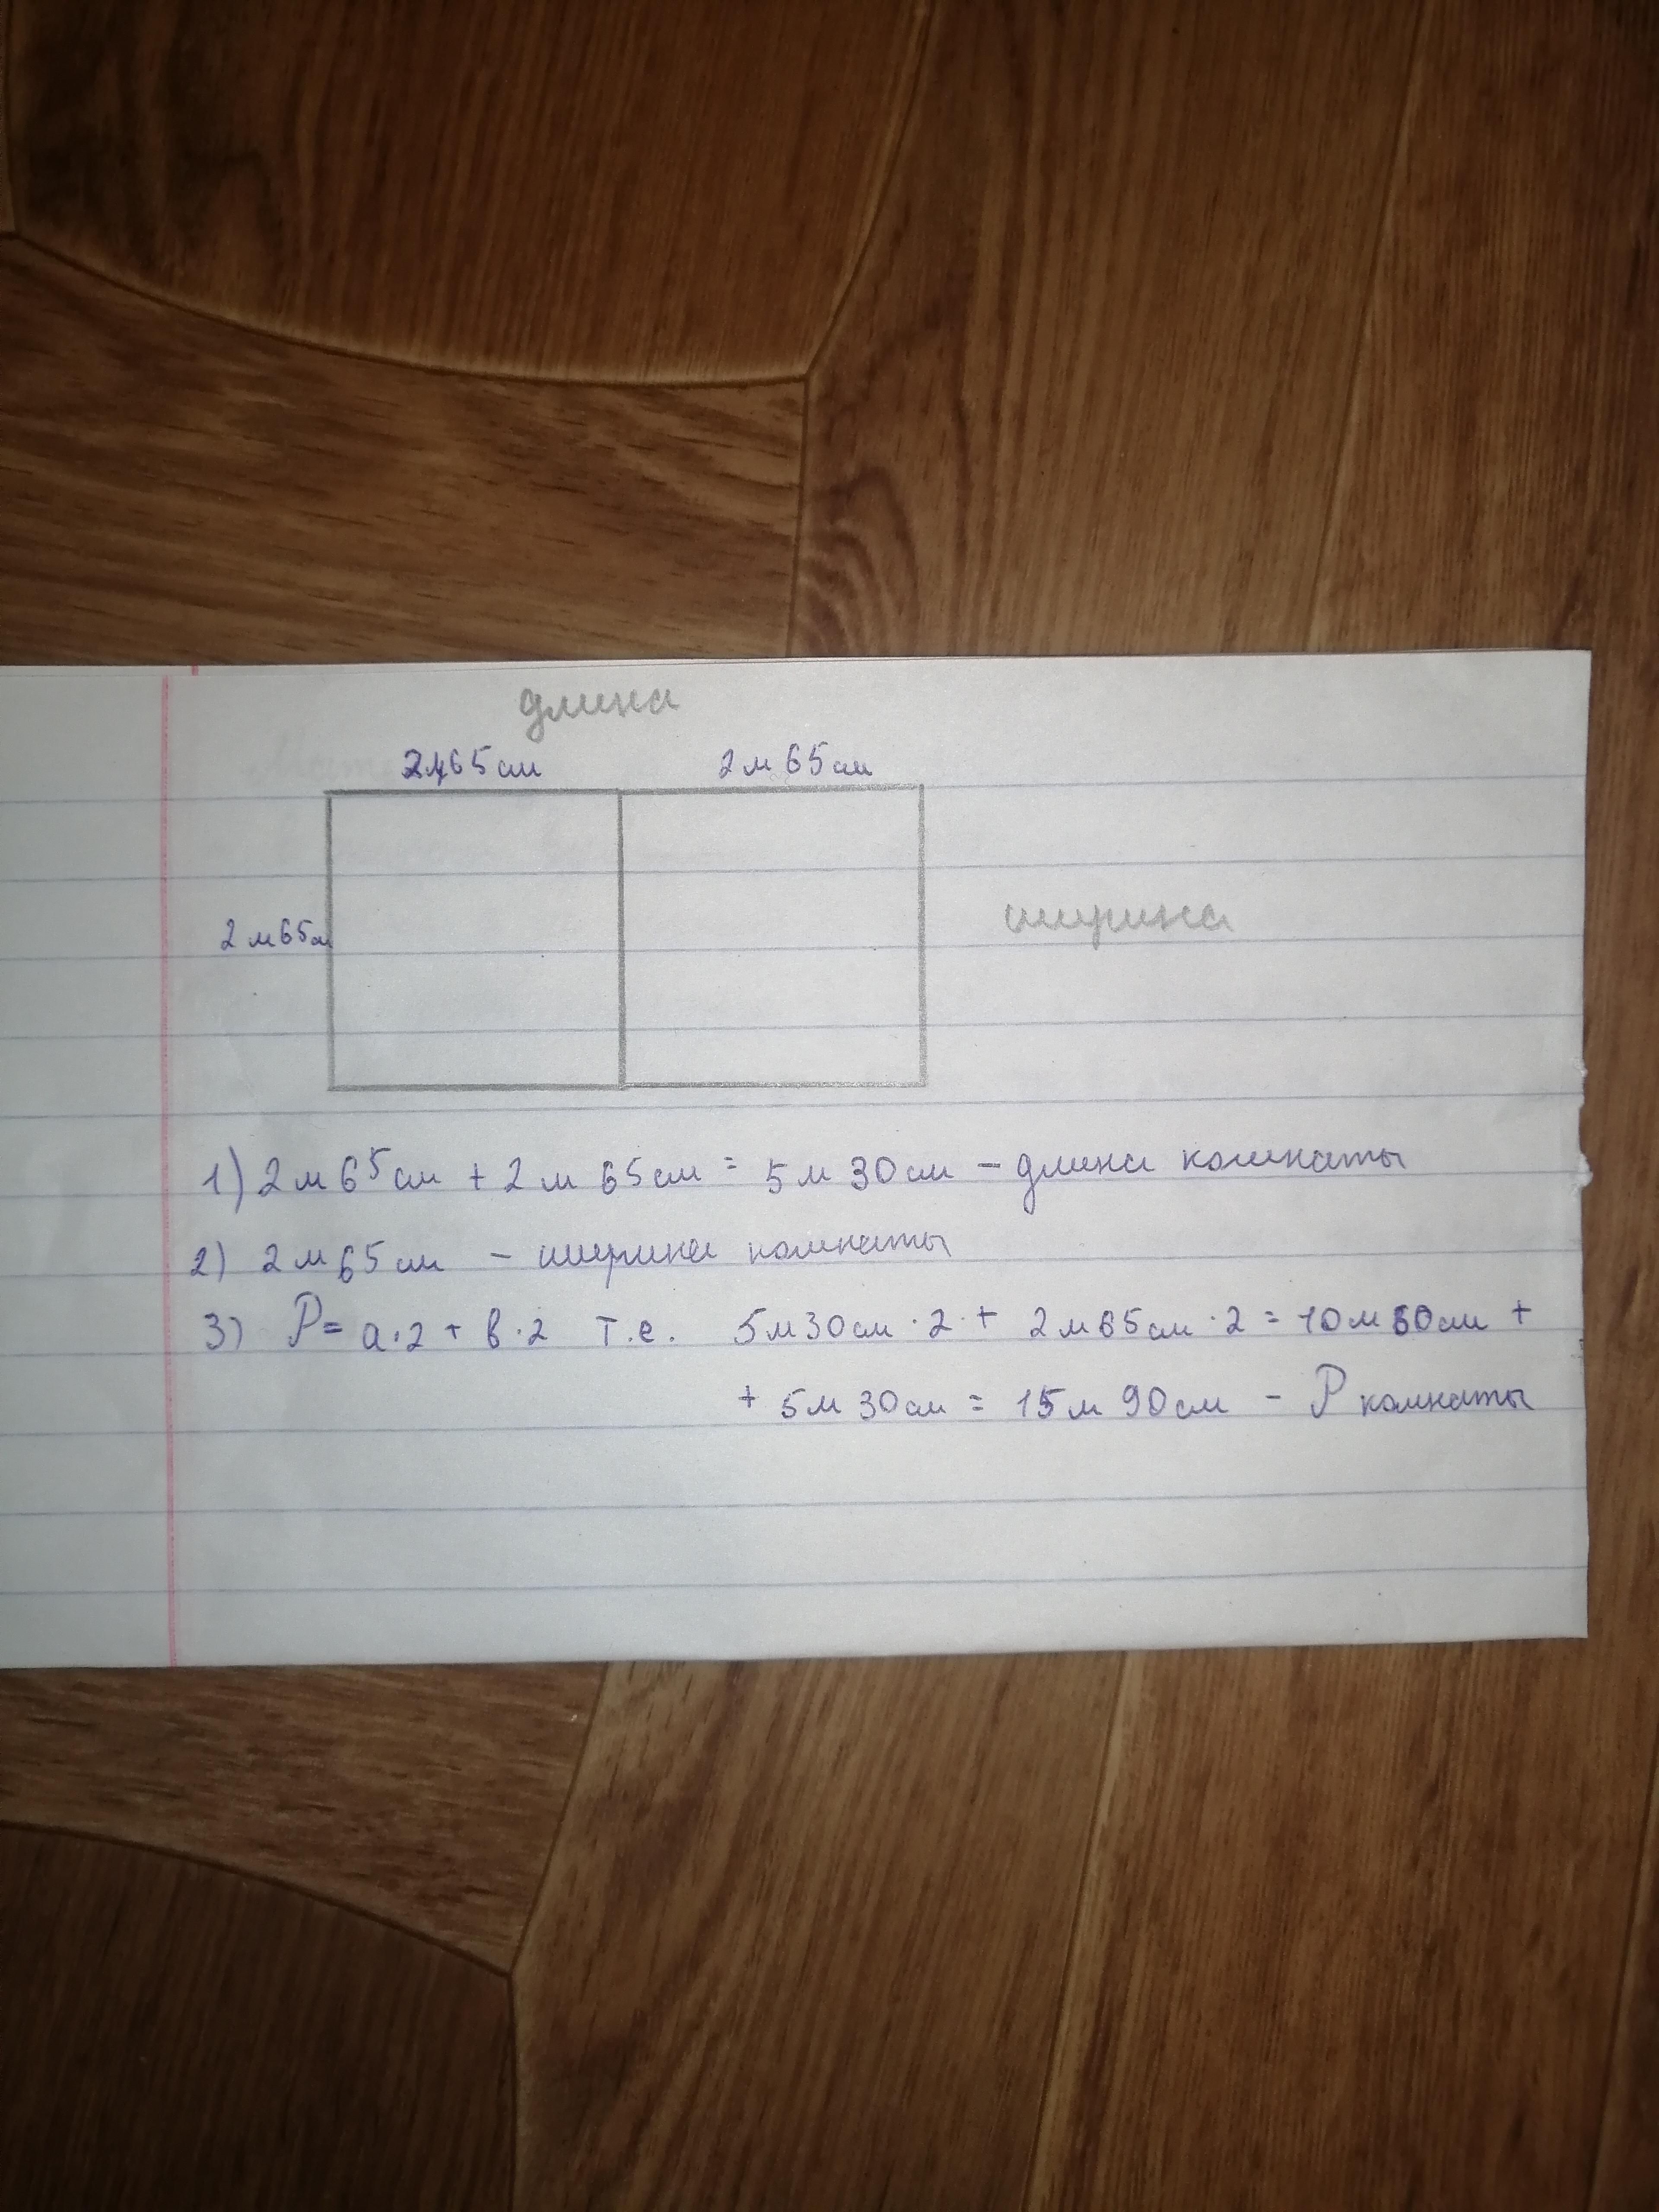 длина
2м65см 2м65см
2м65см
ширина
1) 2м65см + 2м65см = 5м30см - длина комнаты
2) 2м65см - ширина комнаты
3) P = a·2 + в·2 т.е. 5м30см·2 + 2м65см·2 = 10м60см +
+ 5м30см = 15м90см - P комнаты